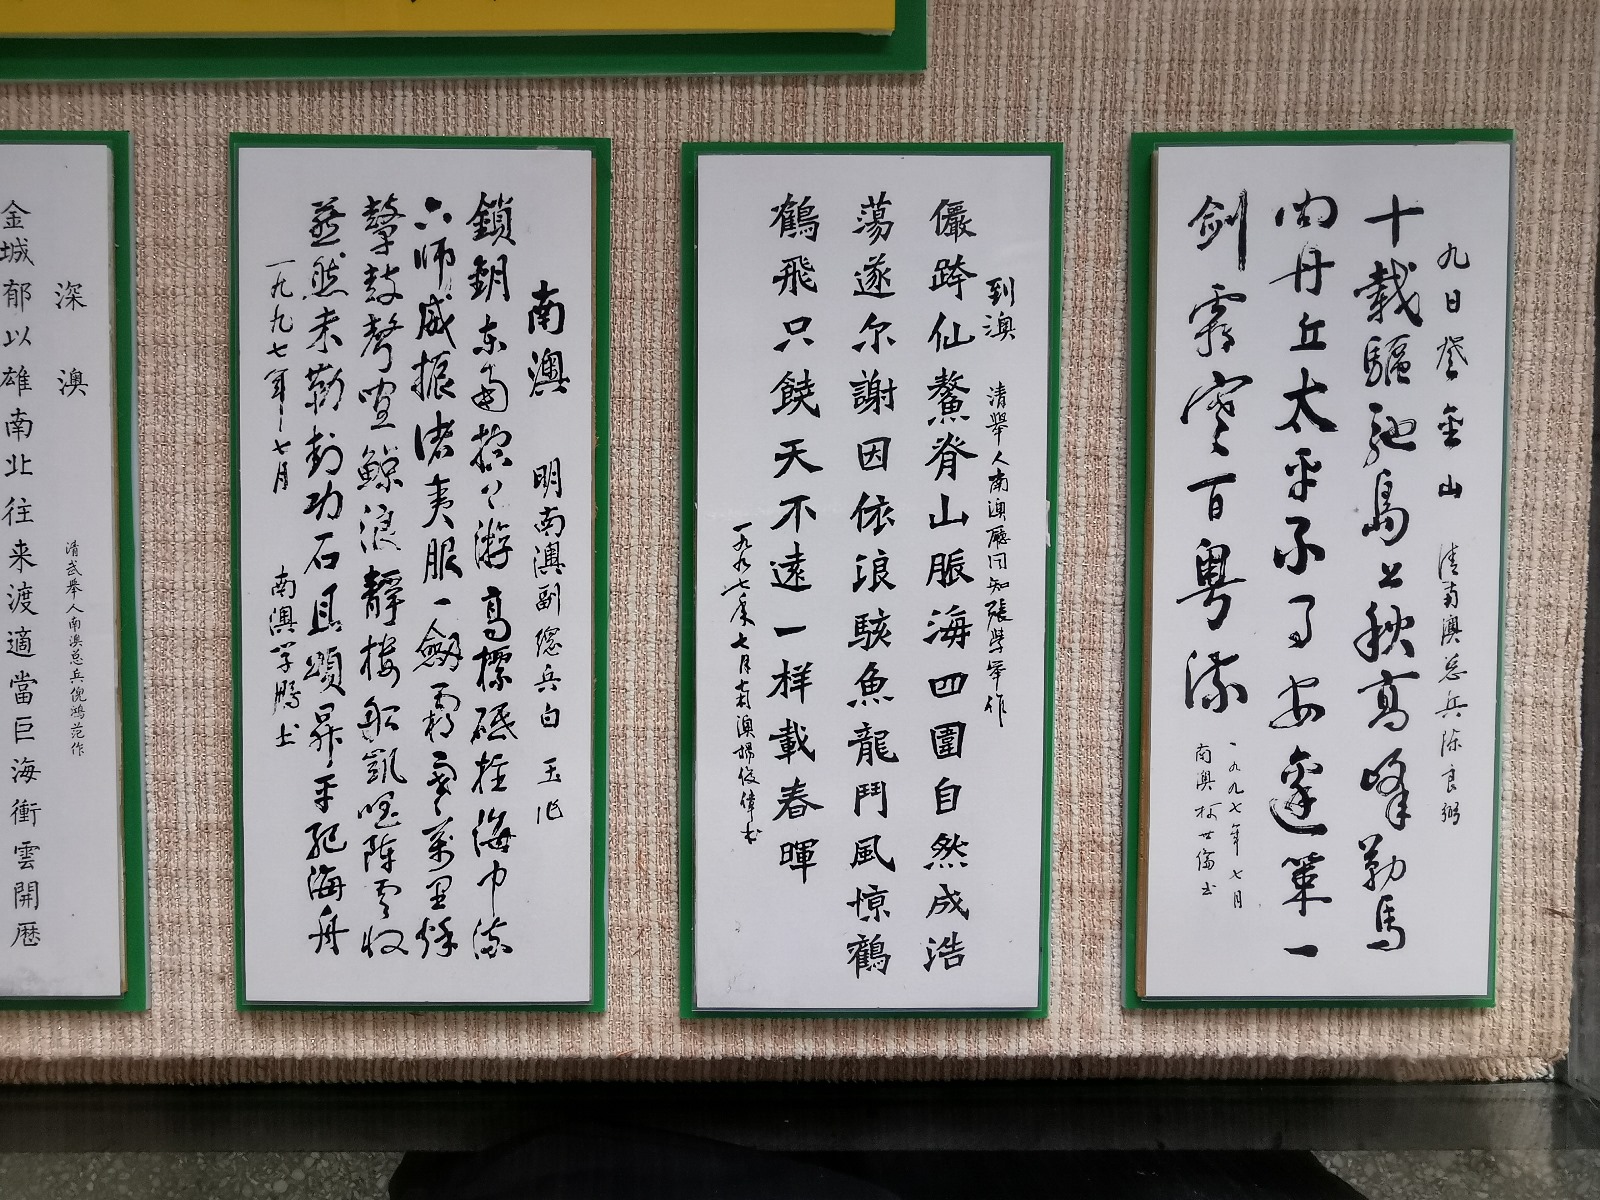 九日登金山
清南澳总兵陈良弼
十载驱驰岛上秋高峰勒马
问丹丘太平不了安邊筆一
剑霜寒百粤流
一九九七年七月
南澳柯世倫书
到澳
清舉人南澳廳同知張學举作
儼跨仙鰲脊山脈海四圍自然成浩
蕩遂尔謝因依浪駭魚龍鬥風惊鶴
鶴飛只饒天不遠一样載春暉
一九九七年七月南澳
南澳
明南澳副總兵白玉作
鎖鑰东南控上游高標砥柱海中流
六师威振诸夷服一劔霜寒萬里烽
鼙鼓聲喧鯨浪靜楼船凱唱陣雲收
燕然未勒封功石且頌昇平纪海舟
一九九七年七月
南澳学鵬书
深澳
清武举人南澳总兵倪鸿范作
金城郁以雄南北往来渡適當巨海衝雲開歷